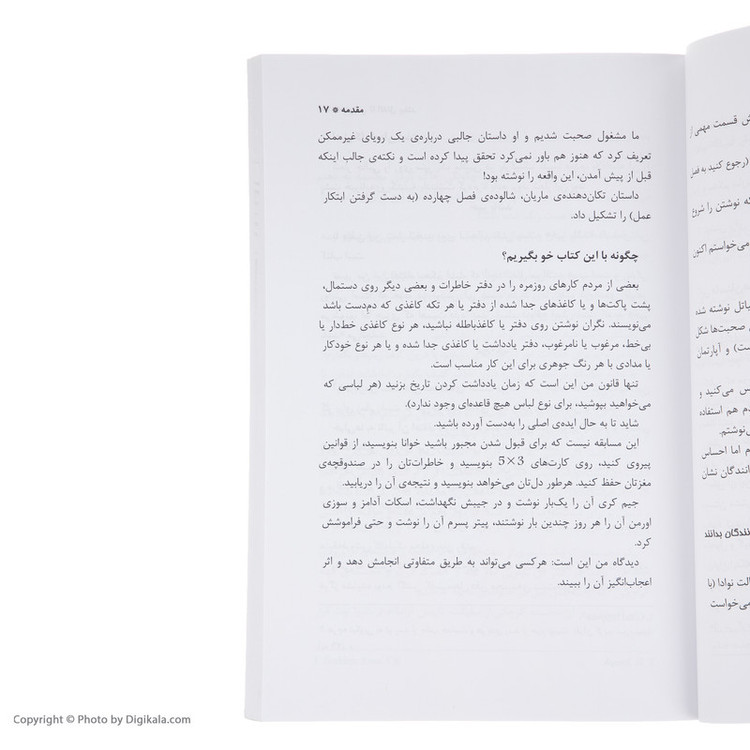 مقدمه * ۱۷
ما مشغول صحبت شدیم و او داستان جالبی درباره‌ی یک رویای غیرممکن
تعریف کرد که هنوز هم باور نمی‌کرد تحقق پیدا کرده است و نکته‌ی جالب اینکه
قبل از پیش آمدن، این واقعه را نوشته بود!
داستان تکان‌دهنده‌ی ماریان، شالوده‌ی فصل چهارده (به دست گرفتن ابتکار
عمل) را تشکیل داد.
چگونه با این کتاب خو بگیریم؟
بعضی از مردم کارهای روزمره را در دفتر خاطرات و بعضی دیگر روی دستمال،
پشت پاکت‌ها و یا کاغذهای جدا شده از دفتر یا هر تکه کاغذی که دم‌دست باشد
می‌نویسند. نگران نوشتن روی دفتر یا کاغذباطله نباشید، هر نوع کاغذی خط‌دار یا
بی‌خط، مرغوب یا نامرغوب، دفتر یادداشت یا کاغذی جدا شده و یا هر نوع خودکار
یا مدادی با هر رنگ جوهری برای این کار مناسب است.
تنها قانون من این است که زمان یادداشت کردن تاریخ بزنید (هر لباسی که
می‌خواهید بپوشید، برای نوع لباس هیچ قاعده‌ای وجود ندارد).
شاید تا به حال ایده‌ی اصلی را به‌دست آورده باشید.
این مسابقه نیست که برای قبول شدن مجبور باشید خوانا بنویسید، از قوانین
پیروی کنید، روی کارت‌های 3×5 بنویسید و خاطرات‌تان را در صندوقچه‌ی
مغزتان حفظ کنید. هرطور دل‌تان می‌خواهد بنویسید و نتیجه‌ی آن را دریابید.
جیم کری آن را یک‌بار نوشت و در جیبش نگهداشت، اسکات آدامز و سوزی
اورمن آن را هر روز چندین بار نوشتند، پیتر پسرم آن را نوشت و حتی فراموشش
کرد.
دیدگاه من این است: هرکسی می‌تواند به طریق متفاوتی انجامش دهد و اثر
اعجاب‌انگیز آن را ببیند.
ش قسمت مهمی از
(رجوع کنید به فصل
که نوشتن را شروع
می‌خواستم اکنون
یاتل نوشته شده
صحبت‌ها شکل
ست) و آپارتمان
س می‌کنید و
م هم استفاده
ی‌نوشتم.
م اما احساس
انندگان نشان
نندگان بدانند
لت نوادا (با
می‌خواست
Copyright © Photo by Digikala.com